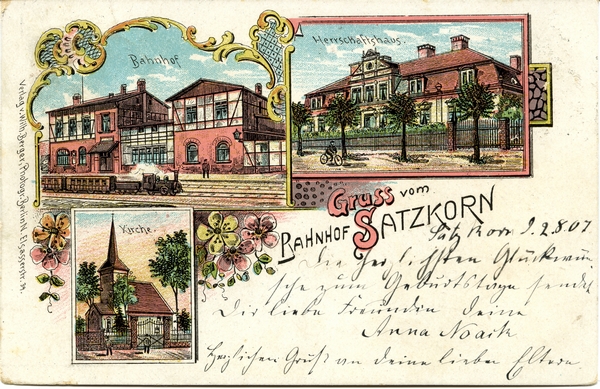 Bahnhof
Herrschaftshaus.
Verlag v. Wilh. Berger, Photogr. Berlin N. Elsasserstr. 14.
Kirche.
Gruss vom
BAHNHOF SATZKORN
Satzkorn 9.2.807
Die herzlichsten Glückwün-
sche zum Geburtstage sendet
Dir liebe Freundin deine
Anna Noack
Herzlichen Gruß an deine lieben Eltern